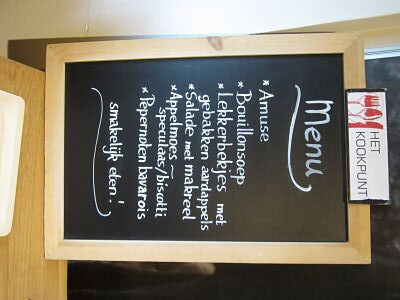 HET
KOOKPUNT
Menu
* Amuse
* Bouillonsoep
* Lekkerbekjes met
gebakken aardappels
* Salade met makreel
* Appelmoes ~
speculaas/biscotti
* Pepernoten bavarois
smakelijk eten!